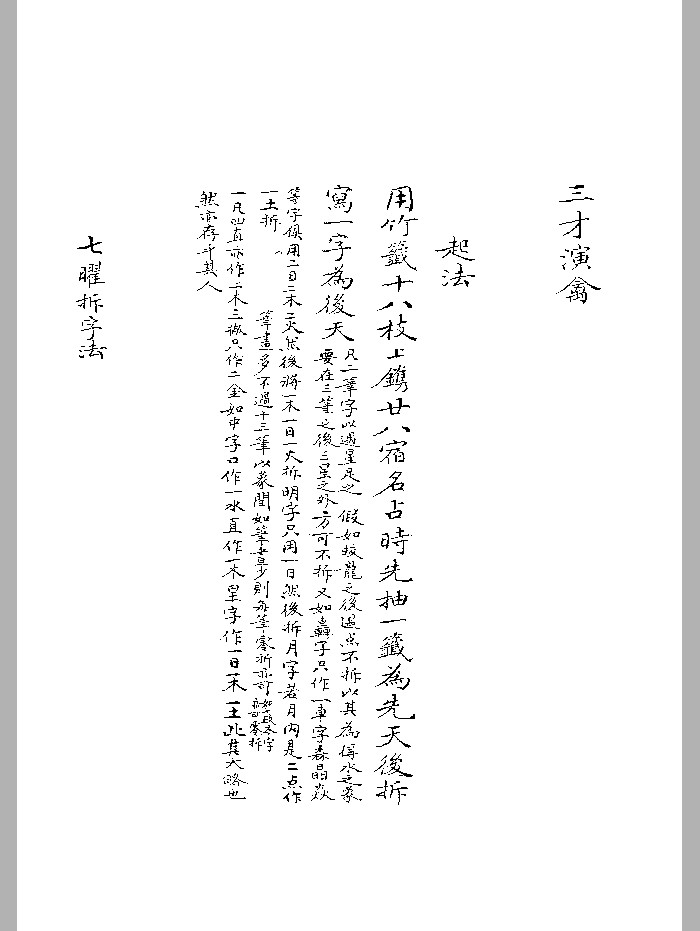 三才演禽
起法
用竹籤十八枝上鐫廿八宿名占時先抽一籤為先天後拆
寫一字為後天
凡二筆字以過星足之 假如蛟龍之後遇点不拆以其為得水之象
要在三筆之後三星之外方可不拆又如轟字只作一車字森晶焱
等字俱用二日二木二火然後將一木一日一火拆明字只用一日然後拆月字若月內是二点作
一土拆
筆畫多不過十三筆以象閏如筆畫少則每筆零拆亦可
一凡凹直亦作一木三撇只作二金如中字口作一水直作一木星字作一日一木一土此其大略也
然亦存乎其人
七曜拆字法